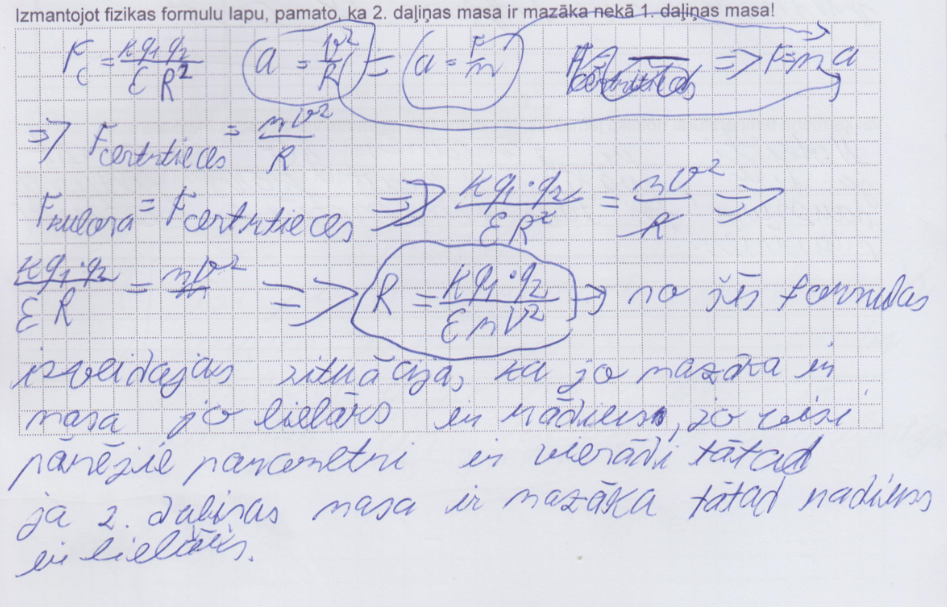 Izmantojot fizikas formulu lapu, pamato, ka 2. daļiņas masa ir mazāka nekā 1. daļiņas masa!
F_C = kq₁q₂/εR² (a = v²/R) = (a = F/m) => F=ma
=> F_centrtieces = mv²/R
F_kulona = F_centrtieces => kq₁·q₂/εR² = mv²/R =>
kq₁·q₂/εR = mv² => R = kq₁·q₂/εmV² → no šīs formulas
izveidojas situācija, ka jo mazāka ir
masa jo lielārs ir rādiuss, jo visi
pārējie parametri ir vienādi tātad
ja 2. daļiņas masa ir mazāka tātad radiuss
ir lielārs.